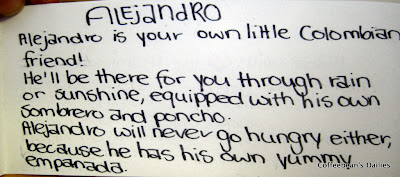 ALEJANDRO
Alejandro is your own little Colombian
friend!
He'll be there for you through rain
or sunshine, equipped with his own
sombrero and poncho.
Alejandro will never go hungry either,
because he has his own yummy
empanada.
Coffeebean's Dailies